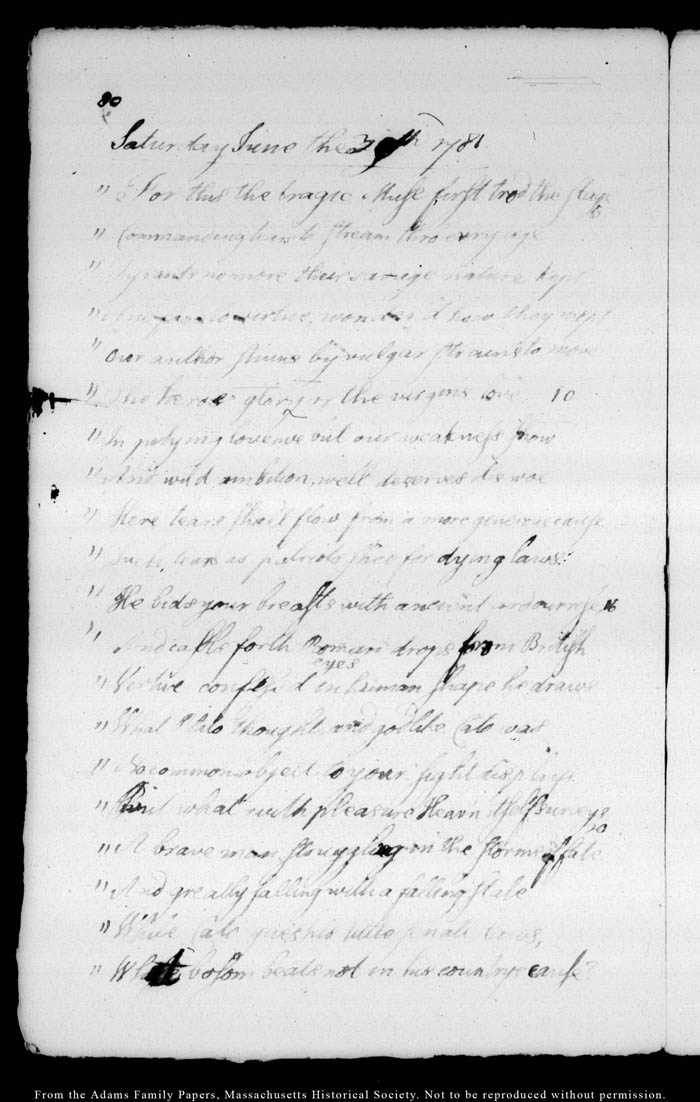 80
Saturday June the 30th 1781
" For this the tragic Muse first trod the stage
5
" Commanding tears to stream thro every age
" Tyrants no more their savage nature kept
" And foes to virtue, wonder'd how they wept
" Our author shuns by vulgar strains to move
" The heroe's glory or the virgins love 10
" In pitying love we but our weakness show
" And wild ambition, well deserves its woe
" Here tears shall flow from a more generous cause
" Such tears as patriots shed for dying laws:
" He bids your breasts with ancient ardour rise, 15
" And calls forth Roman drops from British
eyes
" Virtue confess'd in human shape he draws
" What Plato thought and godlike Cato was
" No common object to your sight displays
" But what with pleasure Heavn itself surveys
20
" A brave man struggling in the storms of fate
" And greatly falling with a falling state
" While Cato gives his little senate laws,
" What bosom beats not in his country's cause?
From the Adams Family Papers, Massachusetts Historical Society. Not to be reproduced without permission.